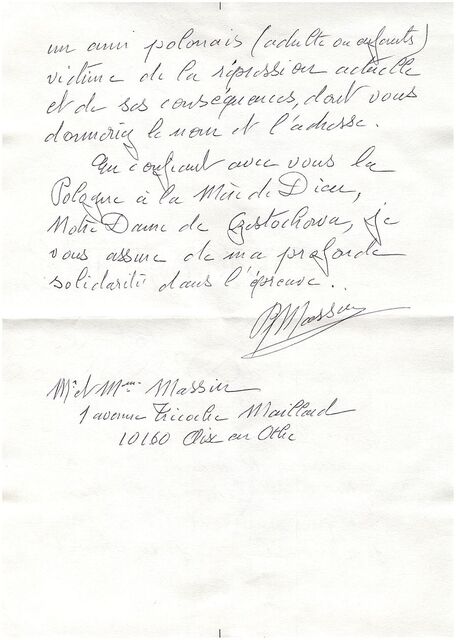 un ami polonais (adulte ou enfants)
victime de la répression actuelle
et de ses conséquences, dont vous
donneriez le nom et l'adresse.
En confiant avec vous la
Pologne à la Mère de Dieu,
Notre Dame de Czestochowa, je
vous assure de ma profonde
solidarité dans l'épreuve..
Massin
Mr et Mme Massin
1 avenue Tricoche Maillard
10160 Aix en Othe